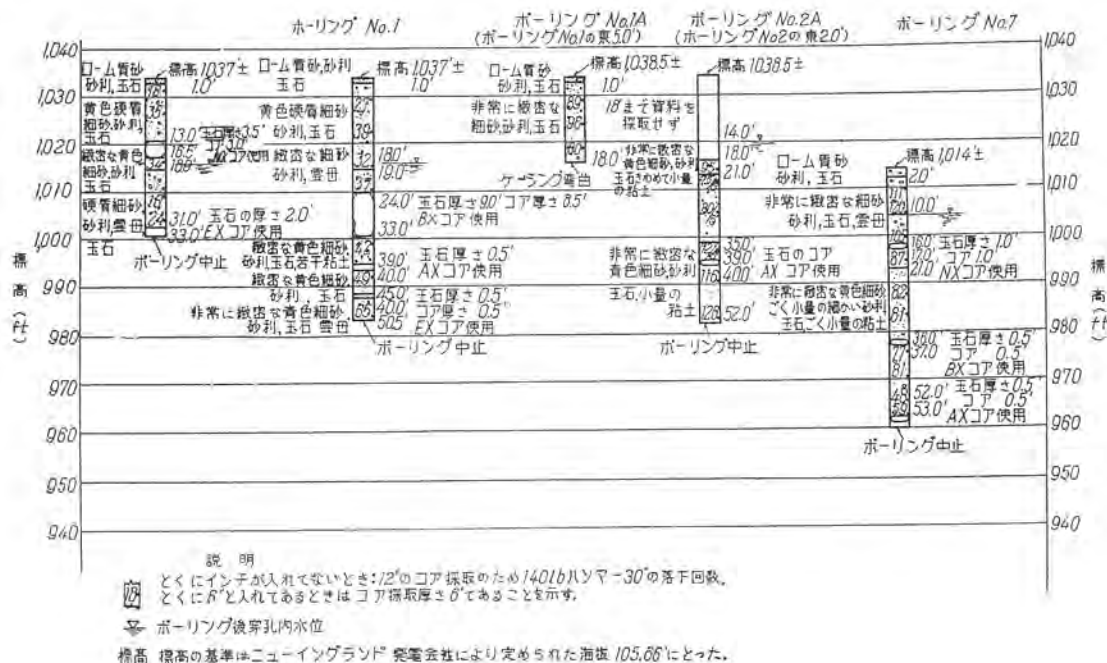 ボーリング No.1
ボーリング No.1A
(ボーリングNo.1の東5.0')
ボーリング No.2A
(ボーリングNo.2の東2.0')
ボーリング No.7
標高 (ft)
1,040
1,030
1,020
1,010
1,000
990
980
970
960
950
940
ローム質砂
砂利,玉石
標高1,037'±
1.0'
黄色硬質
細砂,砂利,
玉石
13.0' 玉石厚さ3.5'
コア3.0'
16.5'
NXコア使用
緻密な黄色
細砂,砂利
玉石
硬質細砂,
砂利,雲母
玉石
31.0' 玉石の厚さ2.0'
33.0' EXコア使用
ボーリング中止
ローム質砂,砂利
玉石
標高1,037'±
1.0'
黄色硬質細砂
砂利,玉石
緻密な細砂
砂利,雲母
18.0'
19.0'
24.0' 玉石厚さ9.0' コア厚さ8.5'
BXコア使用
33.0'
緻密な黄色細砂
砂利玉石若干粘土
39.0' 玉石厚さ0.5'
40.0' AXコア使用
緻密な黄色細砂
砂利,玉石
45.0' 玉石厚さ0.5'
コア厚さ0.5'
非常に緻密な黄色細砂
砂利,玉石 雲母
50.5 EXコア使用
ボーリング中止
ローム質砂
砂利,玉石
標高1,038.5±
1.0'
非常に緻密な
細砂,砂利,玉石
89
96
18.0'
ケーシング弯曲
標高1038.5±
18'まで資料を
採取せず
14.0'
18.0'
21.0'
非常に緻密な
黄色細砂,砂利
玉石きわめて小量
の粘土
非常に緻密な
青色細砂砂利
玉石,小量の
粘土
35.0' 玉石のコア
39.0' AXコア使用
40.0'
116
128
52.0'
ボーリング中止
標高1,014±
ローム質砂
砂利,玉石
2.0'
非常に緻密な細砂
砂利,玉石,雲母
10.0'
16.0' 玉石厚さ1.0'
17.0' コア1.0'
21.0' NXコア使用
87
82
81
非常に緻密な黄色細砂
ごく小量の細かい砂利
玉石ごく小量の粘土
36.0' 玉石厚さ0.5'
37.0 コア 0.5'
BXコア使用
77
81
48
59
52.0' 玉石厚さ0.5'
コア 0.5'
53.0' AXコア使用
ボーリング中止
1,040
1,030
1,020
1,010
1,000
990
980
970
960
950
940
標高 (ft)
説 明
18
とくにインチが入れてないとき:12"のコア採取のため140lbハンマー30"の落下回数,
とくに6"と入れてあるときはコア採取厚さ6"であることを示す.
ボーリング後穿孔内水位
標高 標高の基準はニューイングランド発電会社により定められた海抜105.66'にとった.